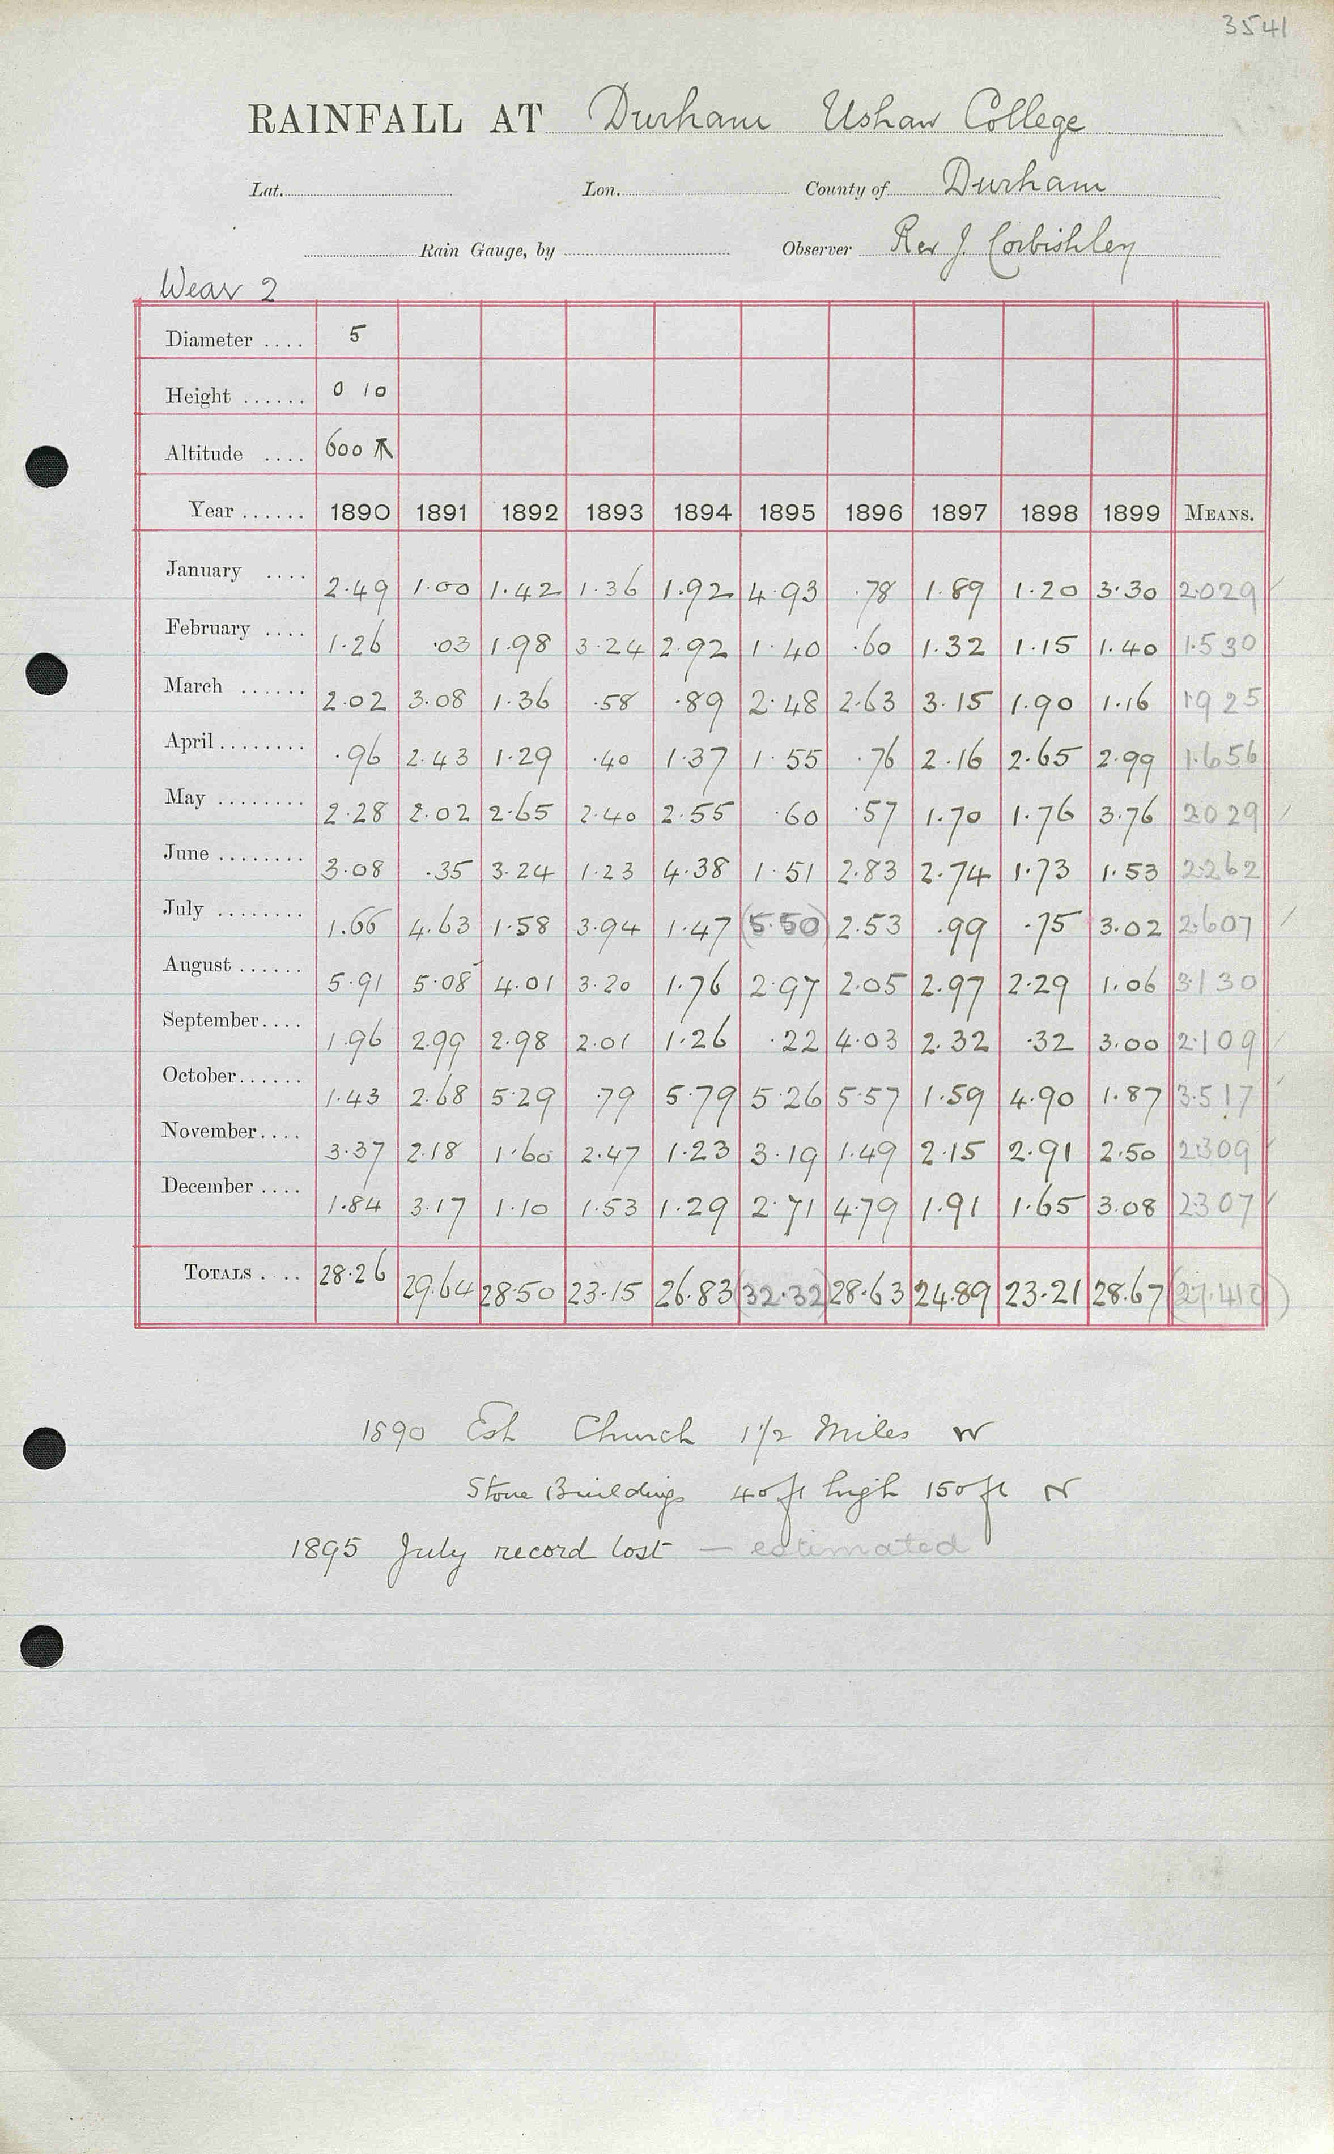 3541
RAINFALL AT Durham Ushaw College
Lat. Lon. County of Durham
Rain Gauge, by Observer Rev J. Corbishley
Wear 2
Diameter .... 5
Height ...... 0 10
Altitude .... 600
Year ...... 1890 1891 1892 1893 1894 1895 1896 1897 1898 1899 MEANS.
January .... 2.49 1.00 1.42 1.36 1.92 4.93 .78 1.89 1.20 3.30 2.029
February .... 1.26 .03 1.98 3.24 2.92 1.40 .60 1.32 1.15 1.40 1.530
March ...... 2.02 3.08 1.36 .58 .89 2.48 2.63 3.15 1.90 1.16 1.925
April ........ .96 2.43 1.29 .40 1.37 1.55 .76 2.16 2.65 2.99 1.656
May ........ 2.28 2.02 2.65 2.40 2.55 .60 .57 1.70 1.76 3.76 2.029
June ........ 3.08 .35 3.24 1.23 4.38 1.51 2.83 2.74 1.73 1.53 2.262
July ........ 1.66 4.63 1.58 3.94 1.47 (5.50) 2.53 .99 .75 3.02 2.607
August ...... 5.91 5.08 4.01 3.20 1.76 2.97 2.05 2.97 2.29 1.06 3.130
September .... 1.96 2.99 2.98 2.01 1.26 .22 4.03 2.32 .32 3.00 2.109
October ...... 1.43 2.68 5.29 .79 5.79 5.26 5.57 1.59 4.90 1.87 3.517
November .... 3.37 2.18 1.60 2.47 1.23 3.19 1.49 2.15 2.91 2.50 2.309
December .... 1.84 3.17 1.10 1.53 1.29 2.71 4.79 1.91 1.65 3.08 2.307
TOTALS .... 28.26 29.64 28.50 23.15 26.83 (32.32) 28.63 24.89 23.21 28.67 (27.410)
1890 Esh Church 1 1/2 Miles W
Stone Buildings 40 ft high 150 ft N
1895 July record lost — estimated